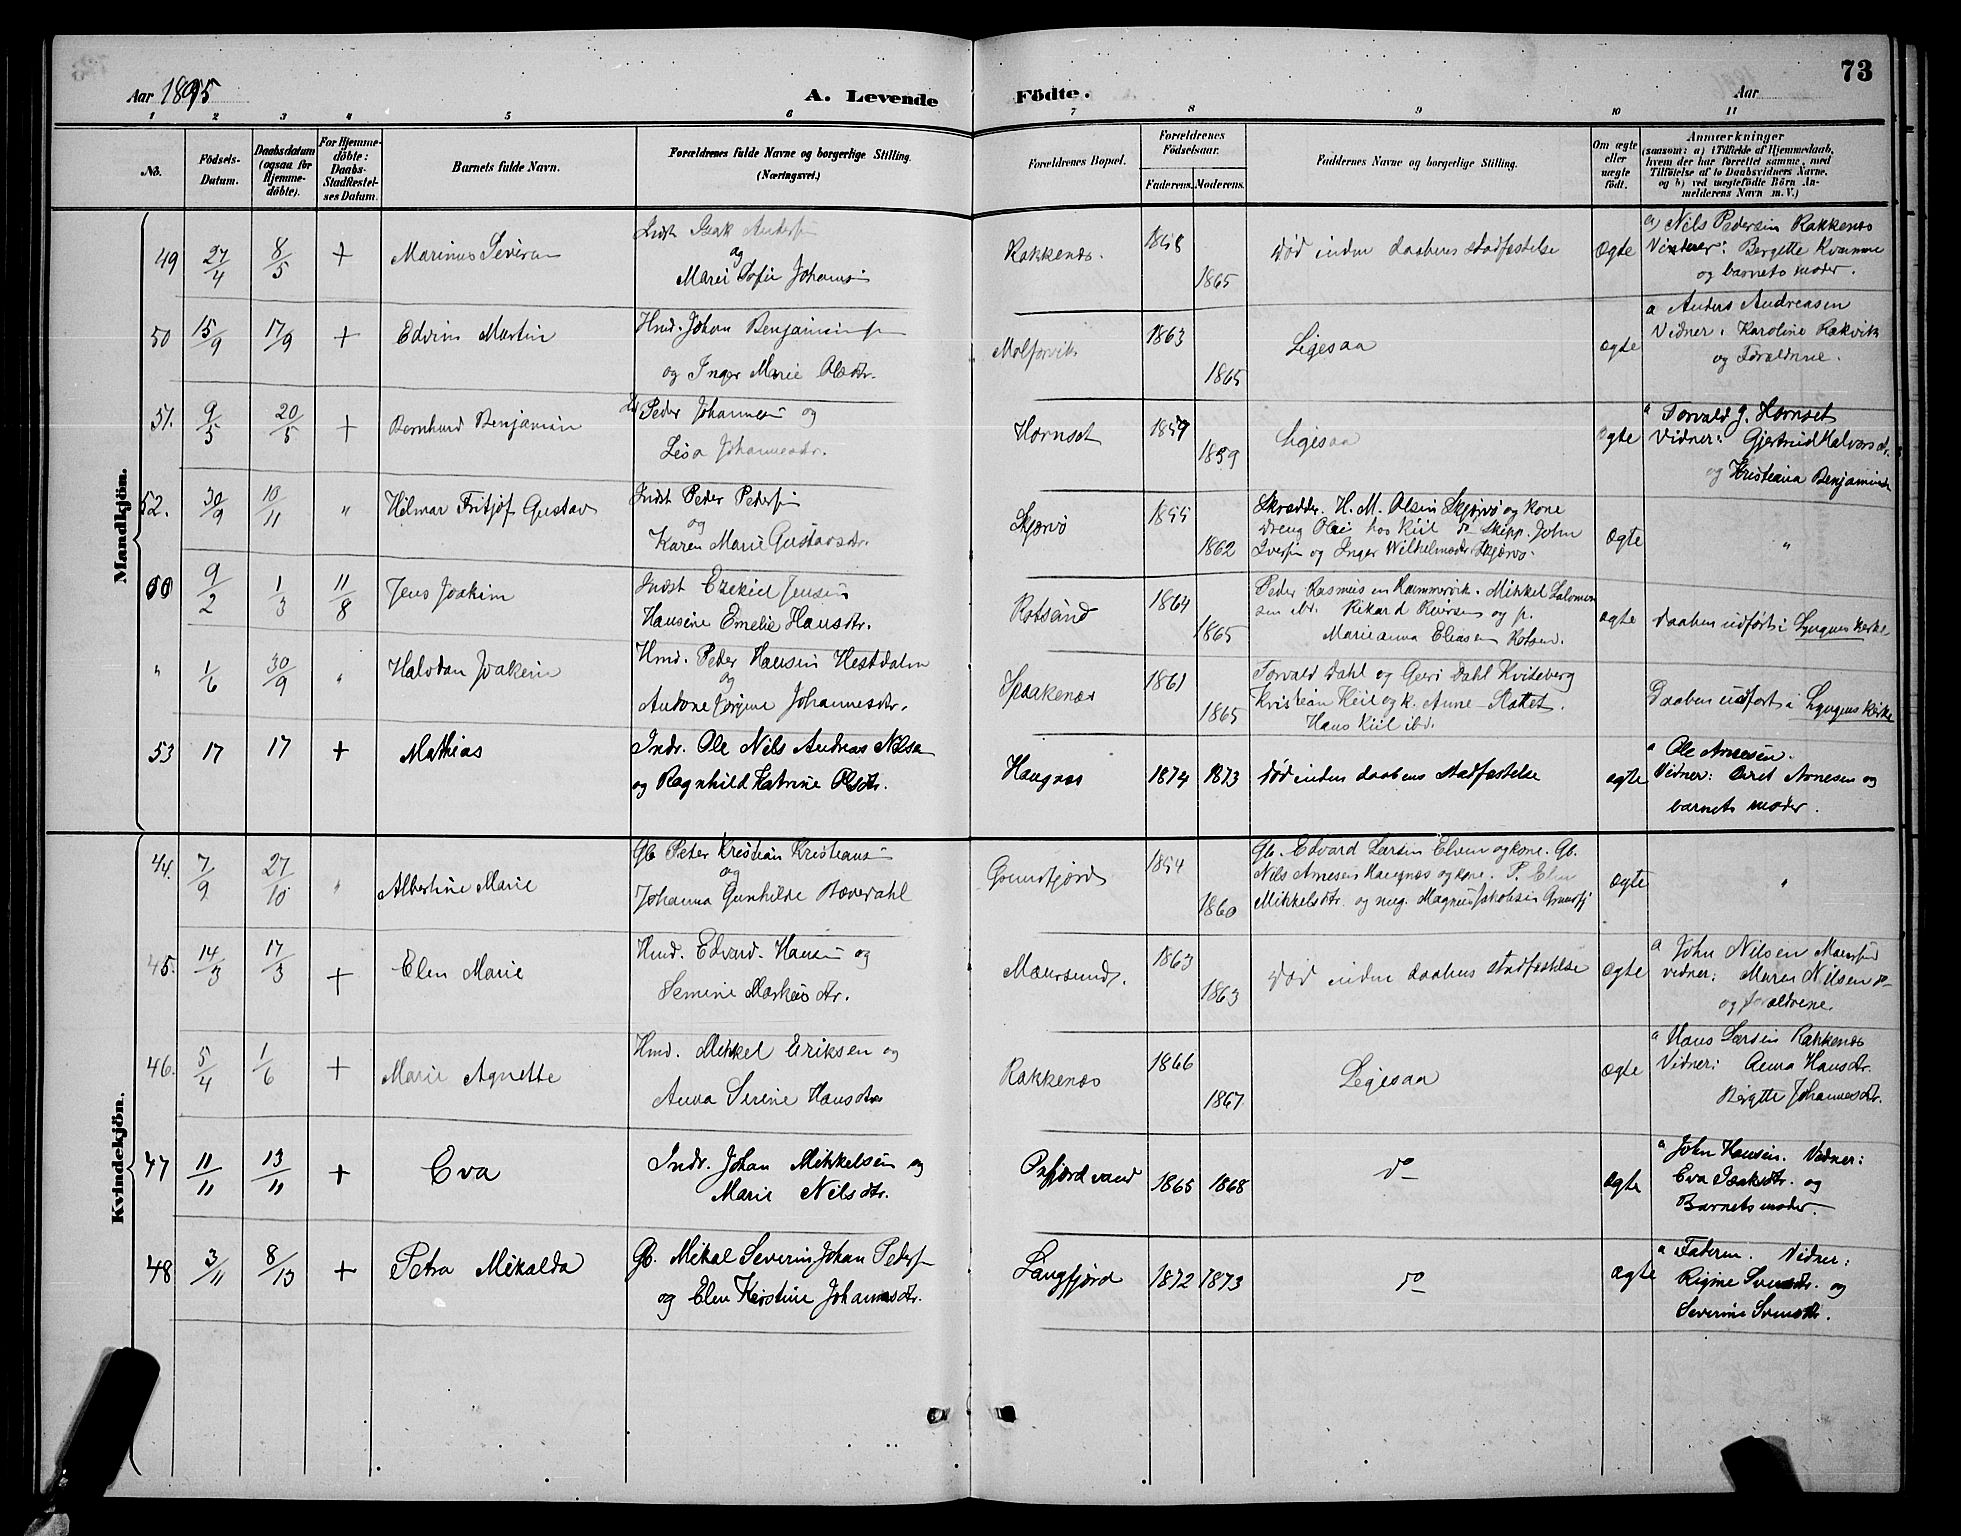 Aar 1895
A. Levende
Födte.
Aar
73
1 2 3 4 5 6 7 8 9 10 11
No.
Födsels-
Datum.
Daabsdatum
(ogsaa for
Hjemme-
döbte).
For Hjemme-
döbte:
Daabs-
Stadfæstel-
ses Datum.
Barnets fulde Navn.
Forældrenes fulde Navne og borgerlige Stilling.
(Næringsvei.)
Forældrenes Bopæl.
Forældrenes
Födselsaar.
Faderens. Moderens.
Faddernes Navne og borgerlige Stilling.
Om ægte
eller
uægte
födt.
Anmærkninger
(saasom: a) i Tilfælde af Hjemmedaab,
hvem der har forrettet samme, med
Tilföielse af to Daabsvidners Navne.
og b) ved uægtefödte Börn An-
melderens Navn m. V.)
Mandkjön.
49 27/4 8/5 + Marinus Severin
Indst Isak Anders
og
Marie Sofie Johans
Rakkenes. 1858 1865
Død inden daabens stadfæstelse
Ægte
a) Nils Pedersen Rakkenes
Vidner: Bergitte Kvamme
og barnets moder.
50 15/9 17/9 + Edvin Martin
Hmd. Johan Benjamins
og Inger Marie Olsdtr.
1863 1865
Ligesaa
ægte
a Anders Andreasen
Vidner: Karoline Rakvik
og Forældrene.
51. 9/5 20/5 + Bernhard Benjamin
Peder Johannes og
Lisa Johannesdtr.
Hornset 1859 1859
Ligesaa
Ægte
a Torvald J. Hornset
Vidner: Gjertrud Halvorsdtr.
og Kristiana Benjamins
52. 30/9 10/11 " Hilmar Fritjof Gustav
Indst Peder Peders
og
Karen Marie Gustavsdtr.
Skjervø 1855 1862
Skrædder. H. M. Olsen Skjervø og kone
Dreng hos Kiil do Skipp. John
Iversen og Inger
Ægte
"
60 9/2 1/3 11/8 Jens Joakim
Indst Ezekiel Jensen
Hansine Emelie Hansdtr.
Rotsund 1864 1865
Peder Rasmussen Hammervik. Mikkel Salomon
sen ibd. Rikard og p.
Marieanna Eliasen Rotsun.
ægte
Daaben udført i Lyngens kirke
" 1/6 30/9 " Halvdan Joakim
Hmd. Peder Hansen Hestdalm
og
Antone Jørgine Johannesdtr.
Spaakenæs 1861 1865
Torvald Dahl og Geri Dahl Kviteberg
Kristian Kiil og k. Anne
Hans Kiil ibd.
Daaben udført i Lyngens kirke
53 17 17 + Mathias
Indr. Ole Nils Andreas Nilsen
og Ragnhild Katrine Olsdtr.
Haugnes 1874 1873
Død inden daabens stadfæstelse
ægte
a Ole Arnesen.
Vidner: Berit Arnesen og
barnets moder.
Kvindekjön.
44. 7/9 27/10 " Albertine Marie
Gb Peter Kristian Kristians
og
Johanna Gunhilde Bæverdahl
Grundfjord 1854 1860
Gb. Edvard Larsen Elven og kone. Gb.
Nils Arnesen Haugnes og kone. P. Elen
Mikkelsdtr. og ung. Magnus Jakobsen Grundfj
ægte
"
45. 14/3 17/3 + Elen Marie
Hmd. Edvard. Hansen og
Semine Markusdtr.
Maursund. 1863 1863
Død inden daabens stadfæstelse
Ægte
a John Nilsen Maursund
vidner: Maren Nilsen do
og forældrene.
46. 5/4 1/6 + Marie Agnette
Hmd. Mikkel Eriksen og
Anna Serine Hansdtr
Rakkenæs 1866 1867
Ligesaa
ægte
a Hans Larsen Rakkenæs
Vidner: Anna Hansdtr.
Birgitte Johannesdtr.
47 11/11 13/11 + Eva
Indr. Johan Mikkelsen og
Marie Nilsdtr.
Oxfjordvand 1865 1868
do
ægte
a John Hansen. Vidner:
Eva Isaksdtr. og
Barnets moder.
48 3/11 8/13 + Petra Mikalda
Gb. Mikal Severin Johan Peders
og Elen Kristine Johannesdtr.
Langfjord 1872 1873
do
ægte
a Faderen. Vidner:
Rigine Svensdtr. og
Severine Svensdtr.